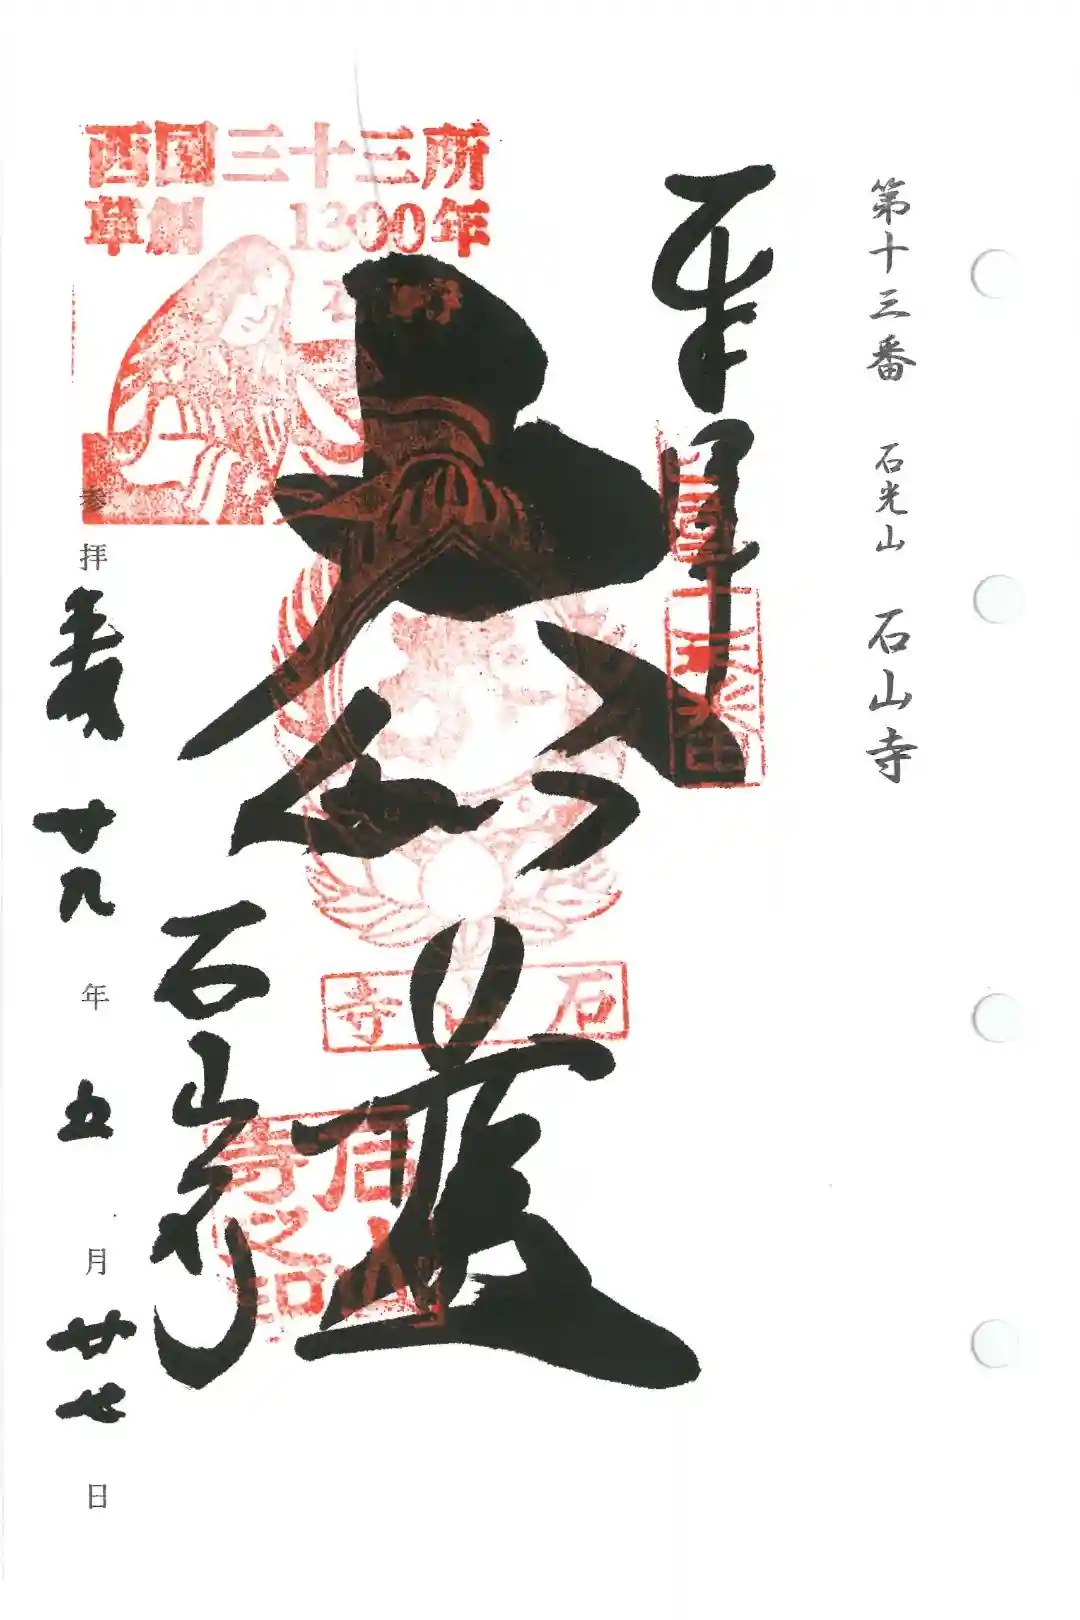 第十三番 石光山 石山寺
奉拝
西国十三番
大悲殿
西国三十三所
草創 1300年
石山寺
石山寺之印
石山寺
参拝 平成廿九年五月廿七日